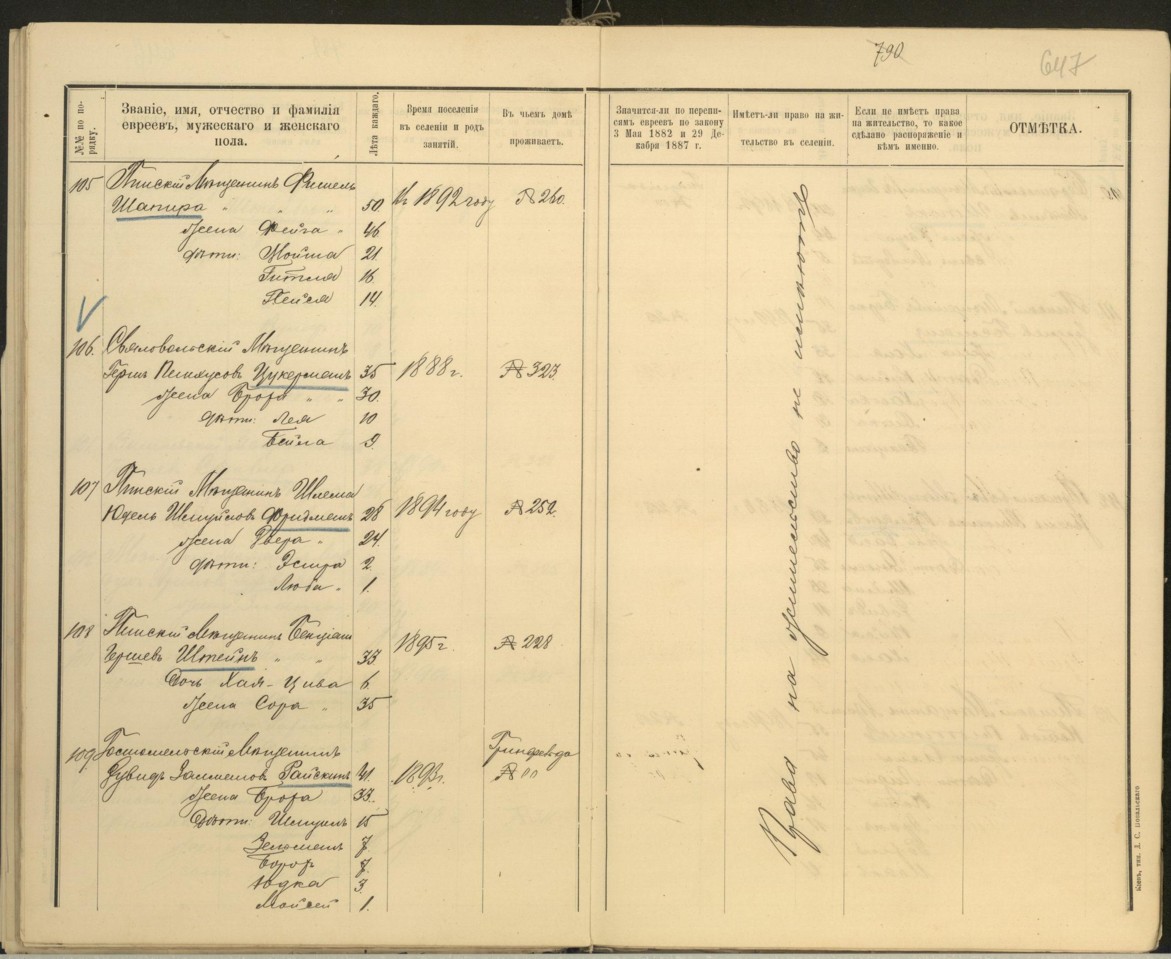 790
647
№№ по порядку.
Званіе, имя, отчество и фамилія
евреевъ, мужескаго и женскаго
пола.
Лѣта каждаго.
Время поселенія
къ селеніи и родъ
занятій.
Въ чьемъ домѣ
проживаетъ.
Значится-ли по перепи-
сямъ евреевъ по закону
3 Мая 1882 и 29 Де-
кабря 1887 г.
Имѣетъ-ли право на жи-
тельство въ селеніи.
Если не имѣетъ права
на жительство, то какое
сдѣлано распоряженіе и
кѣмъ именно.
ОТМѢТКА.
105 Пинскій Мѣщанинъ Фишель
Шапира " " " 50 Съ 1892 году № 260.
Жена Фейга " 46
Дѣти: Мойша 21
Гитля 16
Пейся 14
106. Мѣщанинъ
Герш Пинхусов Цукерманъ 35 1888 г. № 323
Жена Брофа " " 30.
Дѣти: Лея 10
Бейла 9.
107 Пинскій Мѣщанинъ Шлема
Юдель Шмуйлов Фридманъ 28 1894 году № 252.
Жена Двера " 24.
Дѣти: Эстра 2.
Люба " 1.
108 Пинскій Мѣщанинъ
Гершевъ Штейнъ " " 33 1895 г. № 228
Дочь Хая-Цива 6.
Жена Сора " 35
109 Гостомельскій Мѣщанинъ
Дувидъ Райскинъ 41. 1893 г. № "
Жена Брофа 33.
Дѣти: Шмуиль 15
7
7.
Юдка 3.
Мойсей 1.
Права на жительство не имѣютъ
Кіевъ, тип.